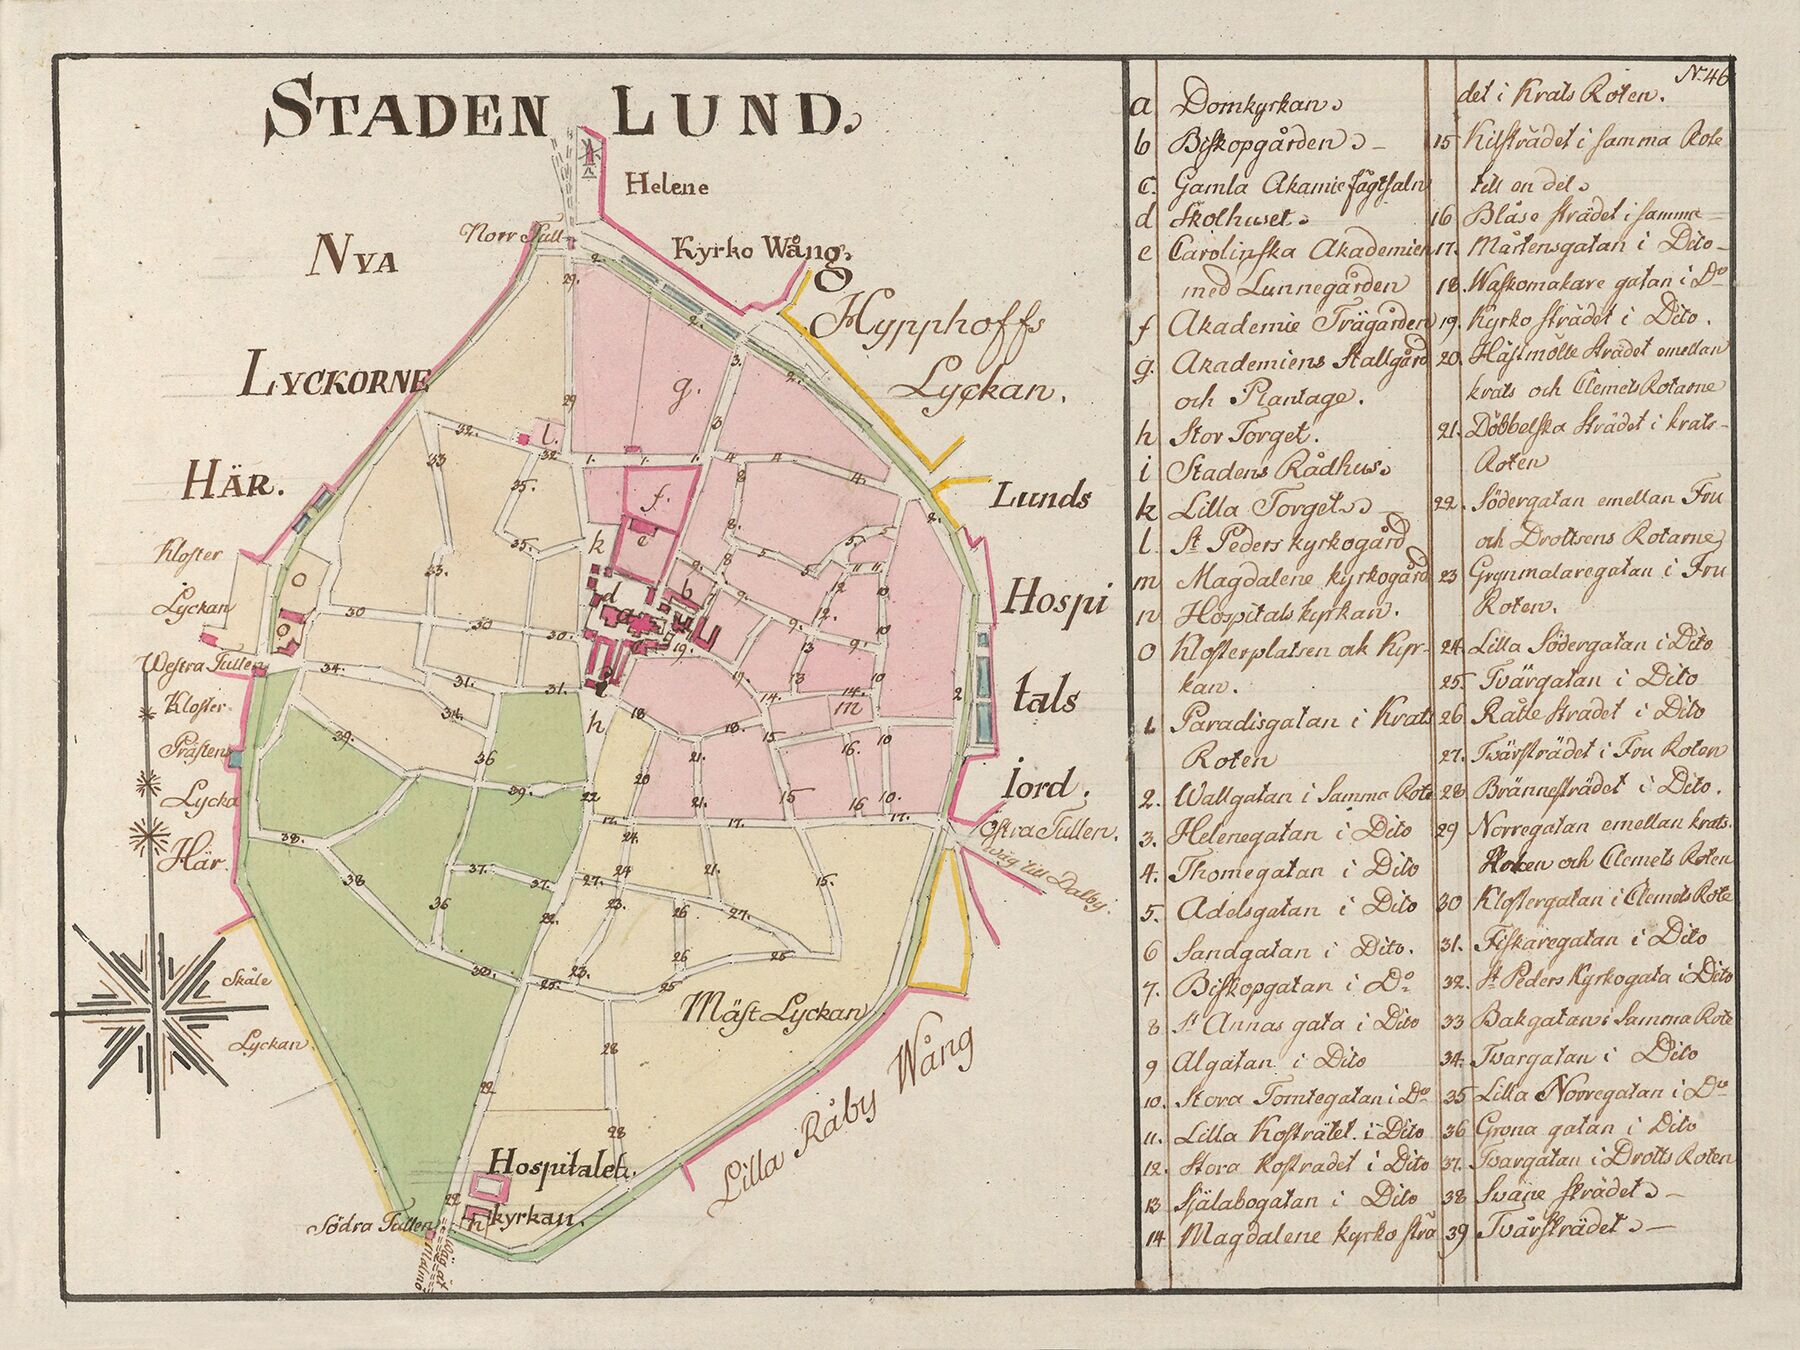 STADEN LUND.
Helene
Kyrko Wång.
Norr Tull
NYA
LYCKORNE
HÄR.
Hypphoffs
Lyckan.
Lunds
Hospi
tals
iord.
Kloster
Lyckan
Westra Tullen
Kloster-
Prästens
Lycka
Här
Skåle
Lyckan
Östra Tullen.
wäg till Dalby.
Mäst Lyckan
Lilla Råby Wång
Hospitalet.
kyrkan.
Södra Tullen
Wäg at
Malmö
No 46
a Domkyrkan.
b Biskopgården. -
c. Gamla Akamie fägtsaln
d Skolhuset.
e Carolinska Akademien
med Lunnegården
f Akademie Trägården
g. Akademiens Stallgård
och Plantage.
h Stor Torget.
i Stadens Rådhus.
k Lilla Torget. -
l. St Peders kyrkogård
m Magdalene kyrkogård
n Hospitals kyrkan.
o Klosterplatsen och Kyr-
kan.
1. Paradisgatan i Krats
Roten
2. Wallgatan i Samma Rote
3. Helenegatan i Dito
4. Thomegatan i Dito
5. Adelsgatan i Dito
6 Sandgatan i Dito.
7. Biskopgatan i Do
8 St Annas gata i Dito
9 Algatan i Dito
10. Stora Tomtegatan i Do
11. Lilla Kosträtet i Dito
12. Stora Kostradet i Dito
13 Själabogatan i Dito
14 Magdalene kyrko strä
det i Krats Roten.
15 Kilsträdet i samma Rote
till en del.
16 Blåse strädet i samma
17. Mårtensgatan i Dito-
18 Waskomakare gatan i Do
19. Kyrko strädet i Dito.
20. Hästmölle strädet emellan
krats och Clemets Rotarne
21. Döbbelska Strädet i krats-
Roten
22. Södergatan emellan Fru
och Drottsens Rotarne
23 Grynmalaregatan i Fru
Roten.
24. Lilla Södergatan i Dito
25. Tvärgatan i Dito
26 Råtte stradet i Dito
27. Twärsträdet i Fru Roten
28 Brännesträdet i Dito.
29 Norregatan emellan krats-
Roten och Clemets Roten
30 Klostergatan i Clemets Rote
31. Fiskaregatan i Dito
32. St Peders Kyrkogata i Dito
33 Bakgatan i Samma Rote
34. Tvargatan i Dito
35 Lilla Norregatan i Do
36 Grona gatan i Dito
37. Tvargatan i Drotts Roten
38 Svane strädet. -
39 Tvärsträdet. -